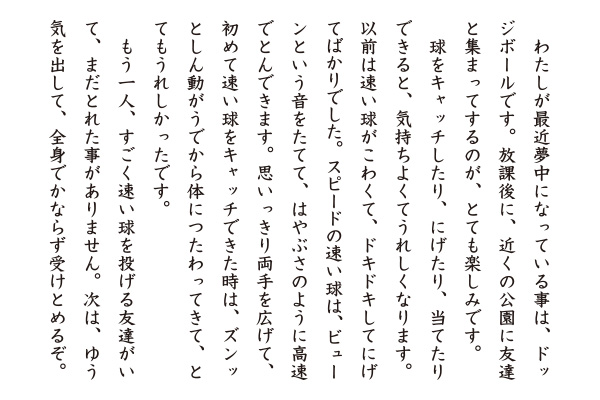 わたしが最近夢中になっている事は、ドッ
ジボールです。放課後に、近くの公園に友達
と集まってするのが、とても楽しみです。
球をキャッチしたり、にげたり、当てたり
できると、気持ちよくてうれしくなります。
以前は速い球がこわくて、ドキドキしてにげ
てばかりでした。スピードの速い球は、ビュー
ンという音をたてて、はやぶさのように高速
でとんできます。思いっきり両手を広げて、
初めて速い球をキャッチできた時は、ズンッ
としん動がうでから体につたわってきて、と
てもうれしかったです。
もう一人、すごく速い球を投げる友達がい
て、まだとれた事がありません。次は、ゆう
気を出して、全身でかならず受けとめるぞ。